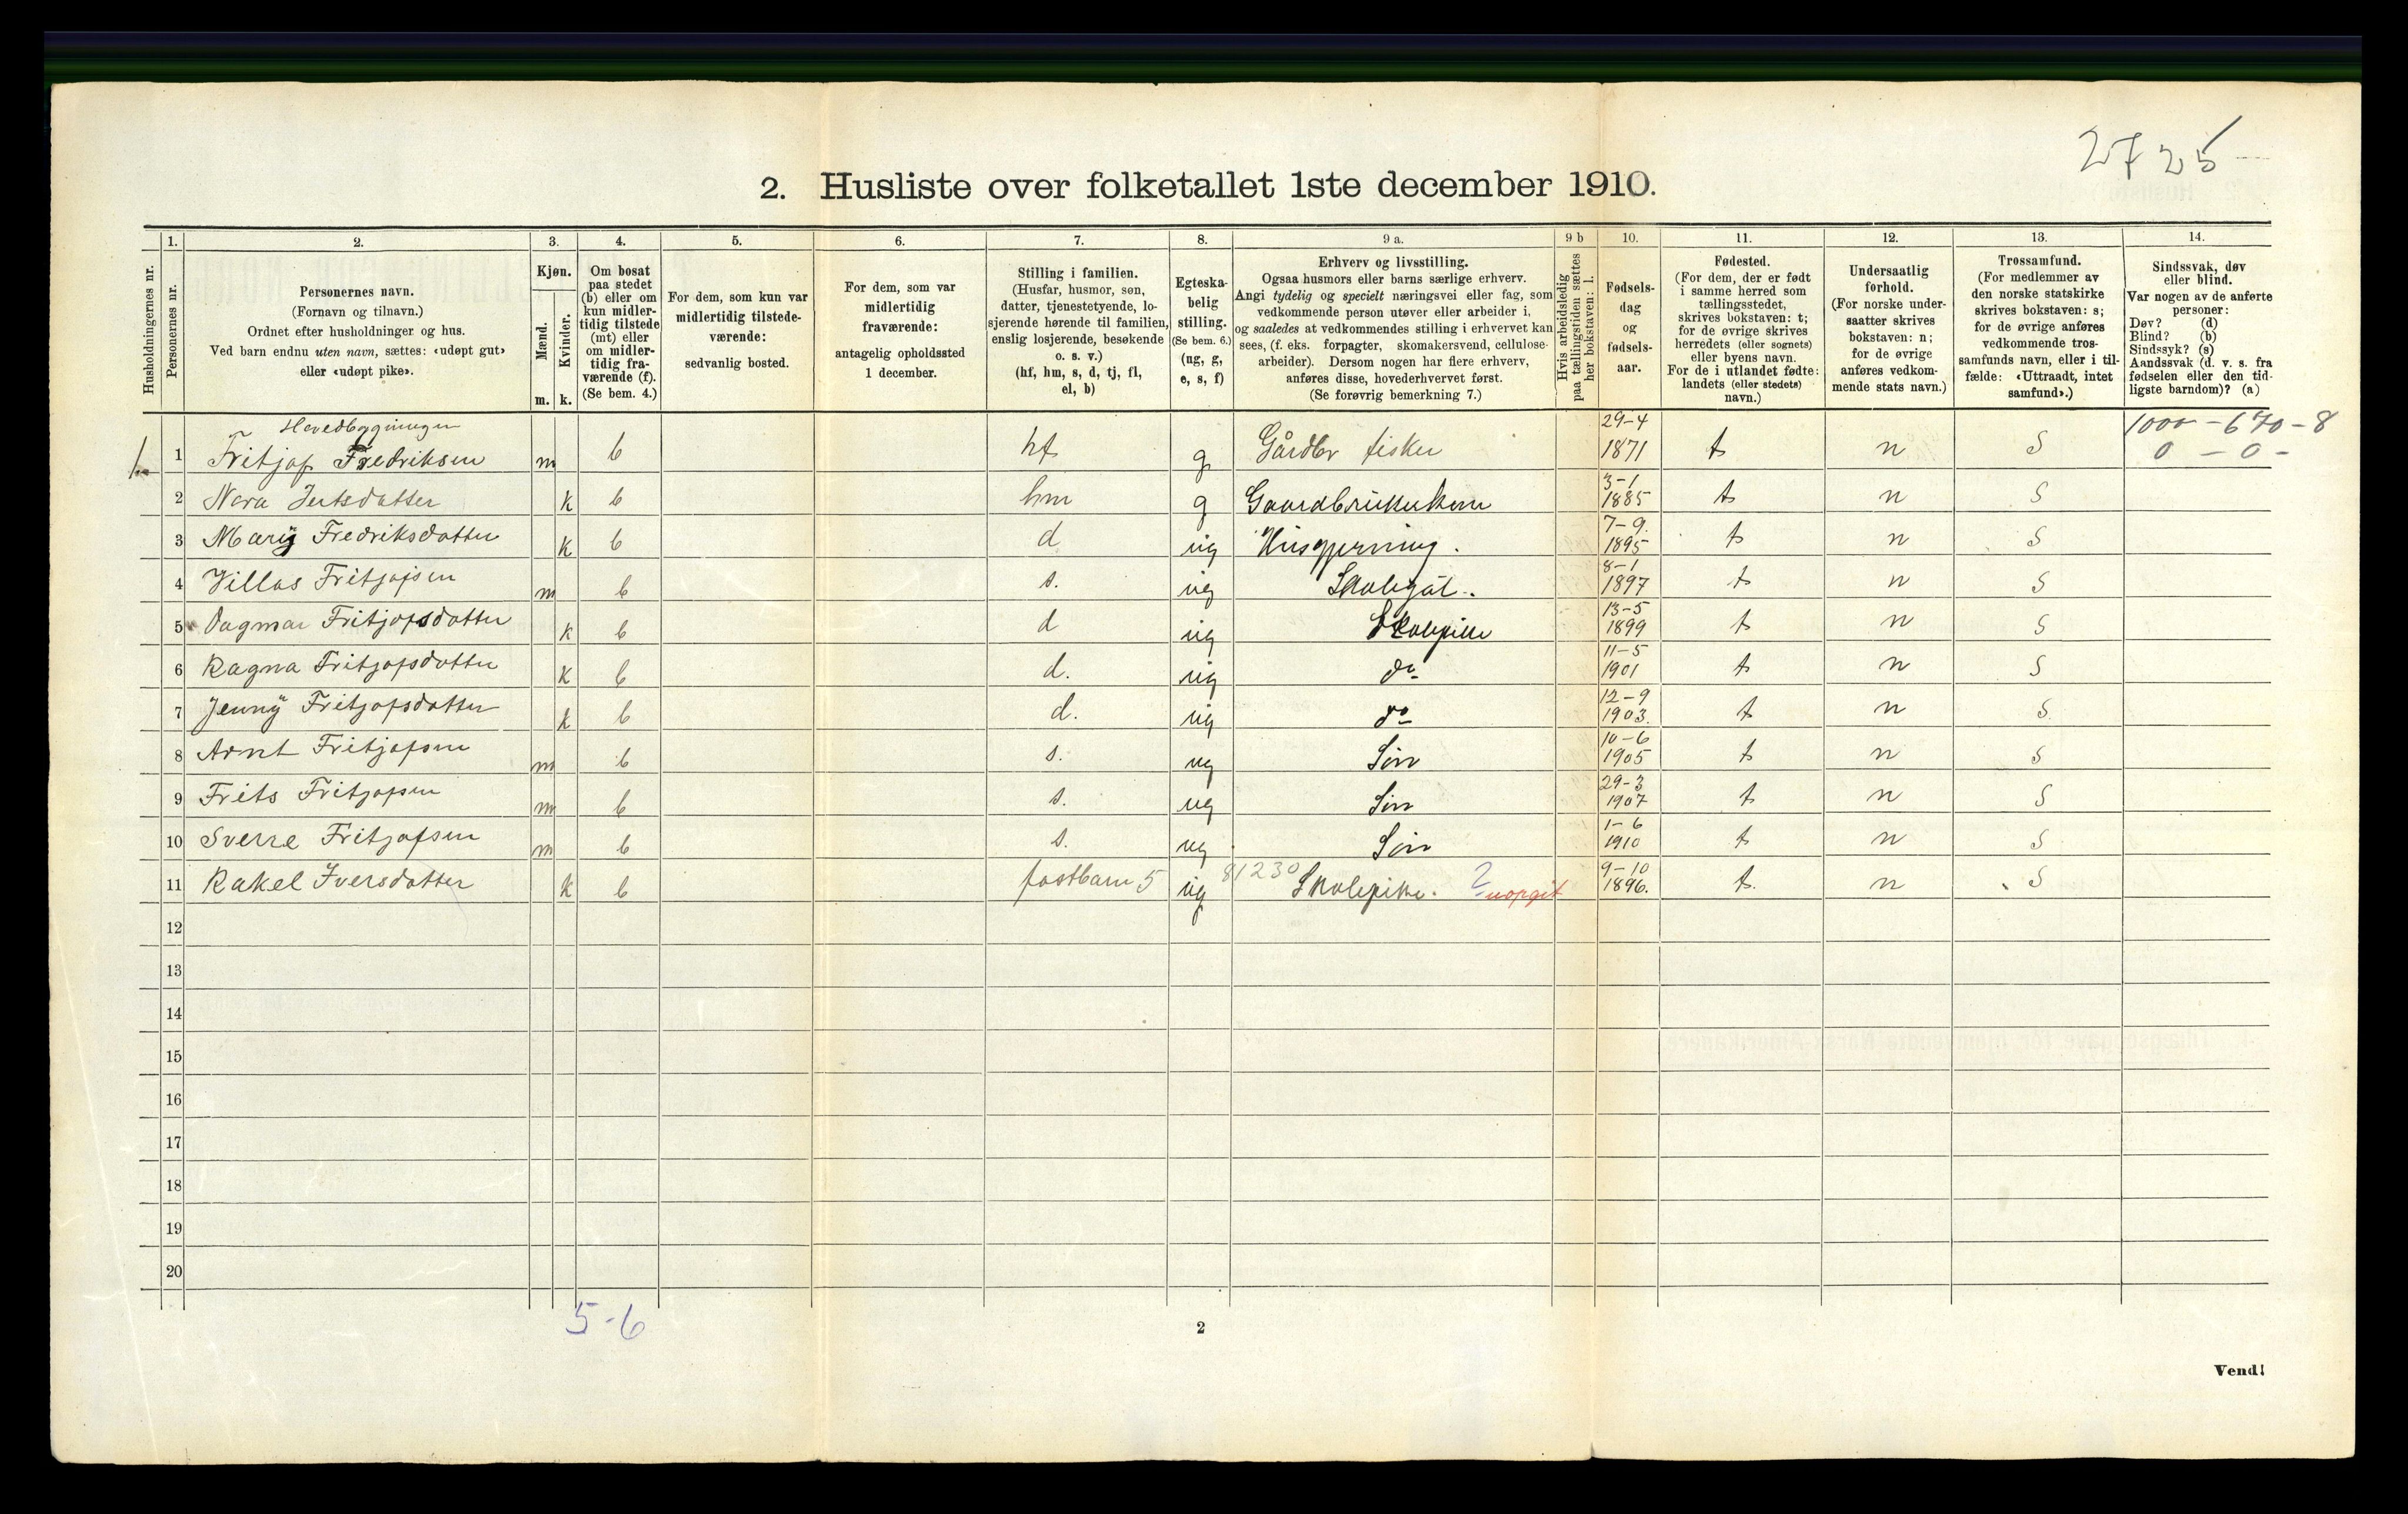 2725
2. Husliste over folketallet 1ste december 1910.
Husholdningernes nr.
1.
Personernes nr.
2.
Personernes navn.
(Fornavn og tilnavn.)
Ordnet efter husholdninger og hus.
Ved barn endnu uten navn, sættes: «udøpt gut»
eller «udøpt pike».
3.
Kjøn.
Mænd.
Kvinder.
m. k.
4.
Om bosat
paa stedet
(b) eller om
kun midler-
tidig tilstede
(mt) eller
om midler-
tidig fra-
værende (f).
(Se bem. 4.)
5.
For dem, som kun var
midlertidig tilstede-
værende:
sedvanlig bosted.
6.
For dem, som var
midlertidig
fraværende:
antagelig opholdssted
1 december.
7.
Stilling i familien.
(Husfar, husmor, søn,
datter, tjenestetyende, lo-
sjerende hørende til familien,
enslig losjerende, besøkende
o. s. v.)
(hf, hm, s, d, tj, fl,
el, b)
8.
Egteska-
belig
stilling.
(Se bem. 6.)
(ug, g,
e, s, f)
9 a.
Erhverv og livsstilling.
Ogsaa husmors eller barns særlige erhverv.
Angi tydelig og specielt næringsvei eller fag, som
vedkommende person utøver eller arbeider i,
og saaledes at vedkommendes stilling i erhvervet kan
sees, (f. eks. forpagter, skomakersvend, cellulose-
arbeider). Dersom nogen har flere erhverv,
anføres disse, hovederhvervet først.
(Se forøvrig bemerkning 7.)
9 b
Hvis arbeidsledig
paa tællingstiden sættes
her bokstaven: l.
10.
Fødsels-
dag
og
fødsels-
aar.
11.
Fødested.
(For dem, der er født
i samme herred som
tællingsstedet,
skrives bokstaven: t;
for de øvrige skrives
herredets (eller sognets)
eller byens navn.
For de i utlandet fødte:
landets (eller stedets)
navn.)
12.
Undersaatlig
forhold.
(For norske under-
saatter skrives
bokstaven: n;
for de øvrige
anføres vedkom-
mende stats navn.)
13.
Trossamfund.
(For medlemmer av
den norske statskirke
skrives bokstaven: s;
for de øvrige anføres
vedkommende tros-
samfunds navn, eller i til-
fælde: «Uttraadt, intet
samfund».)
14.
Sindssvak, døv
eller blind.
Var nogen av de anførte
personer:
Døv? (d)
Blind? (b)
Sindssyk? (s)
Aandssvak (d. v. s. fra
fødselen eller den tid-
ligste barndom)? (a)
Hovedbygningen 29-4 1000 - 670 - 8
1. 1 Fritjof Fredriksen m b hf g Gårdbr fisker 1871 t n S 0 - 0 -
3-1
2 Nora k b hm g 1885 t n S
7-9.
3 Mary Fredriksdatter k b d ug Husgjerning. 1895 t n S
8-1
4 Villas Fritjofsen m b s. ug Skolegut. 1897 t n S
13-5
5 Dagmar Fritjofsdatter k b d ug Skolepike 1899 t n S
11-5
6 Ragna Fritjofsdatter k b d. ug do 1901 t n S
12-9
7 Jenny Fritjofsdatter k b d. ug do 1903. t n S
10-6
8 Arnt Fritjofsen m b s. ug Søn 1905 t n S
29-3
9 Frits Fritjofsen m b s. ug Søn 1907 t n S
1-6
10 Sverre Fritjofsen m b s. ug Søn 1910 t n S
81230 9-10
11 Rakel Iversdatter k b fostbarn 5 ug Skolepike. ? uopgit 1896. t. n S
12
13
14
15
16
17
18
19
20
5-6
2
Vend!